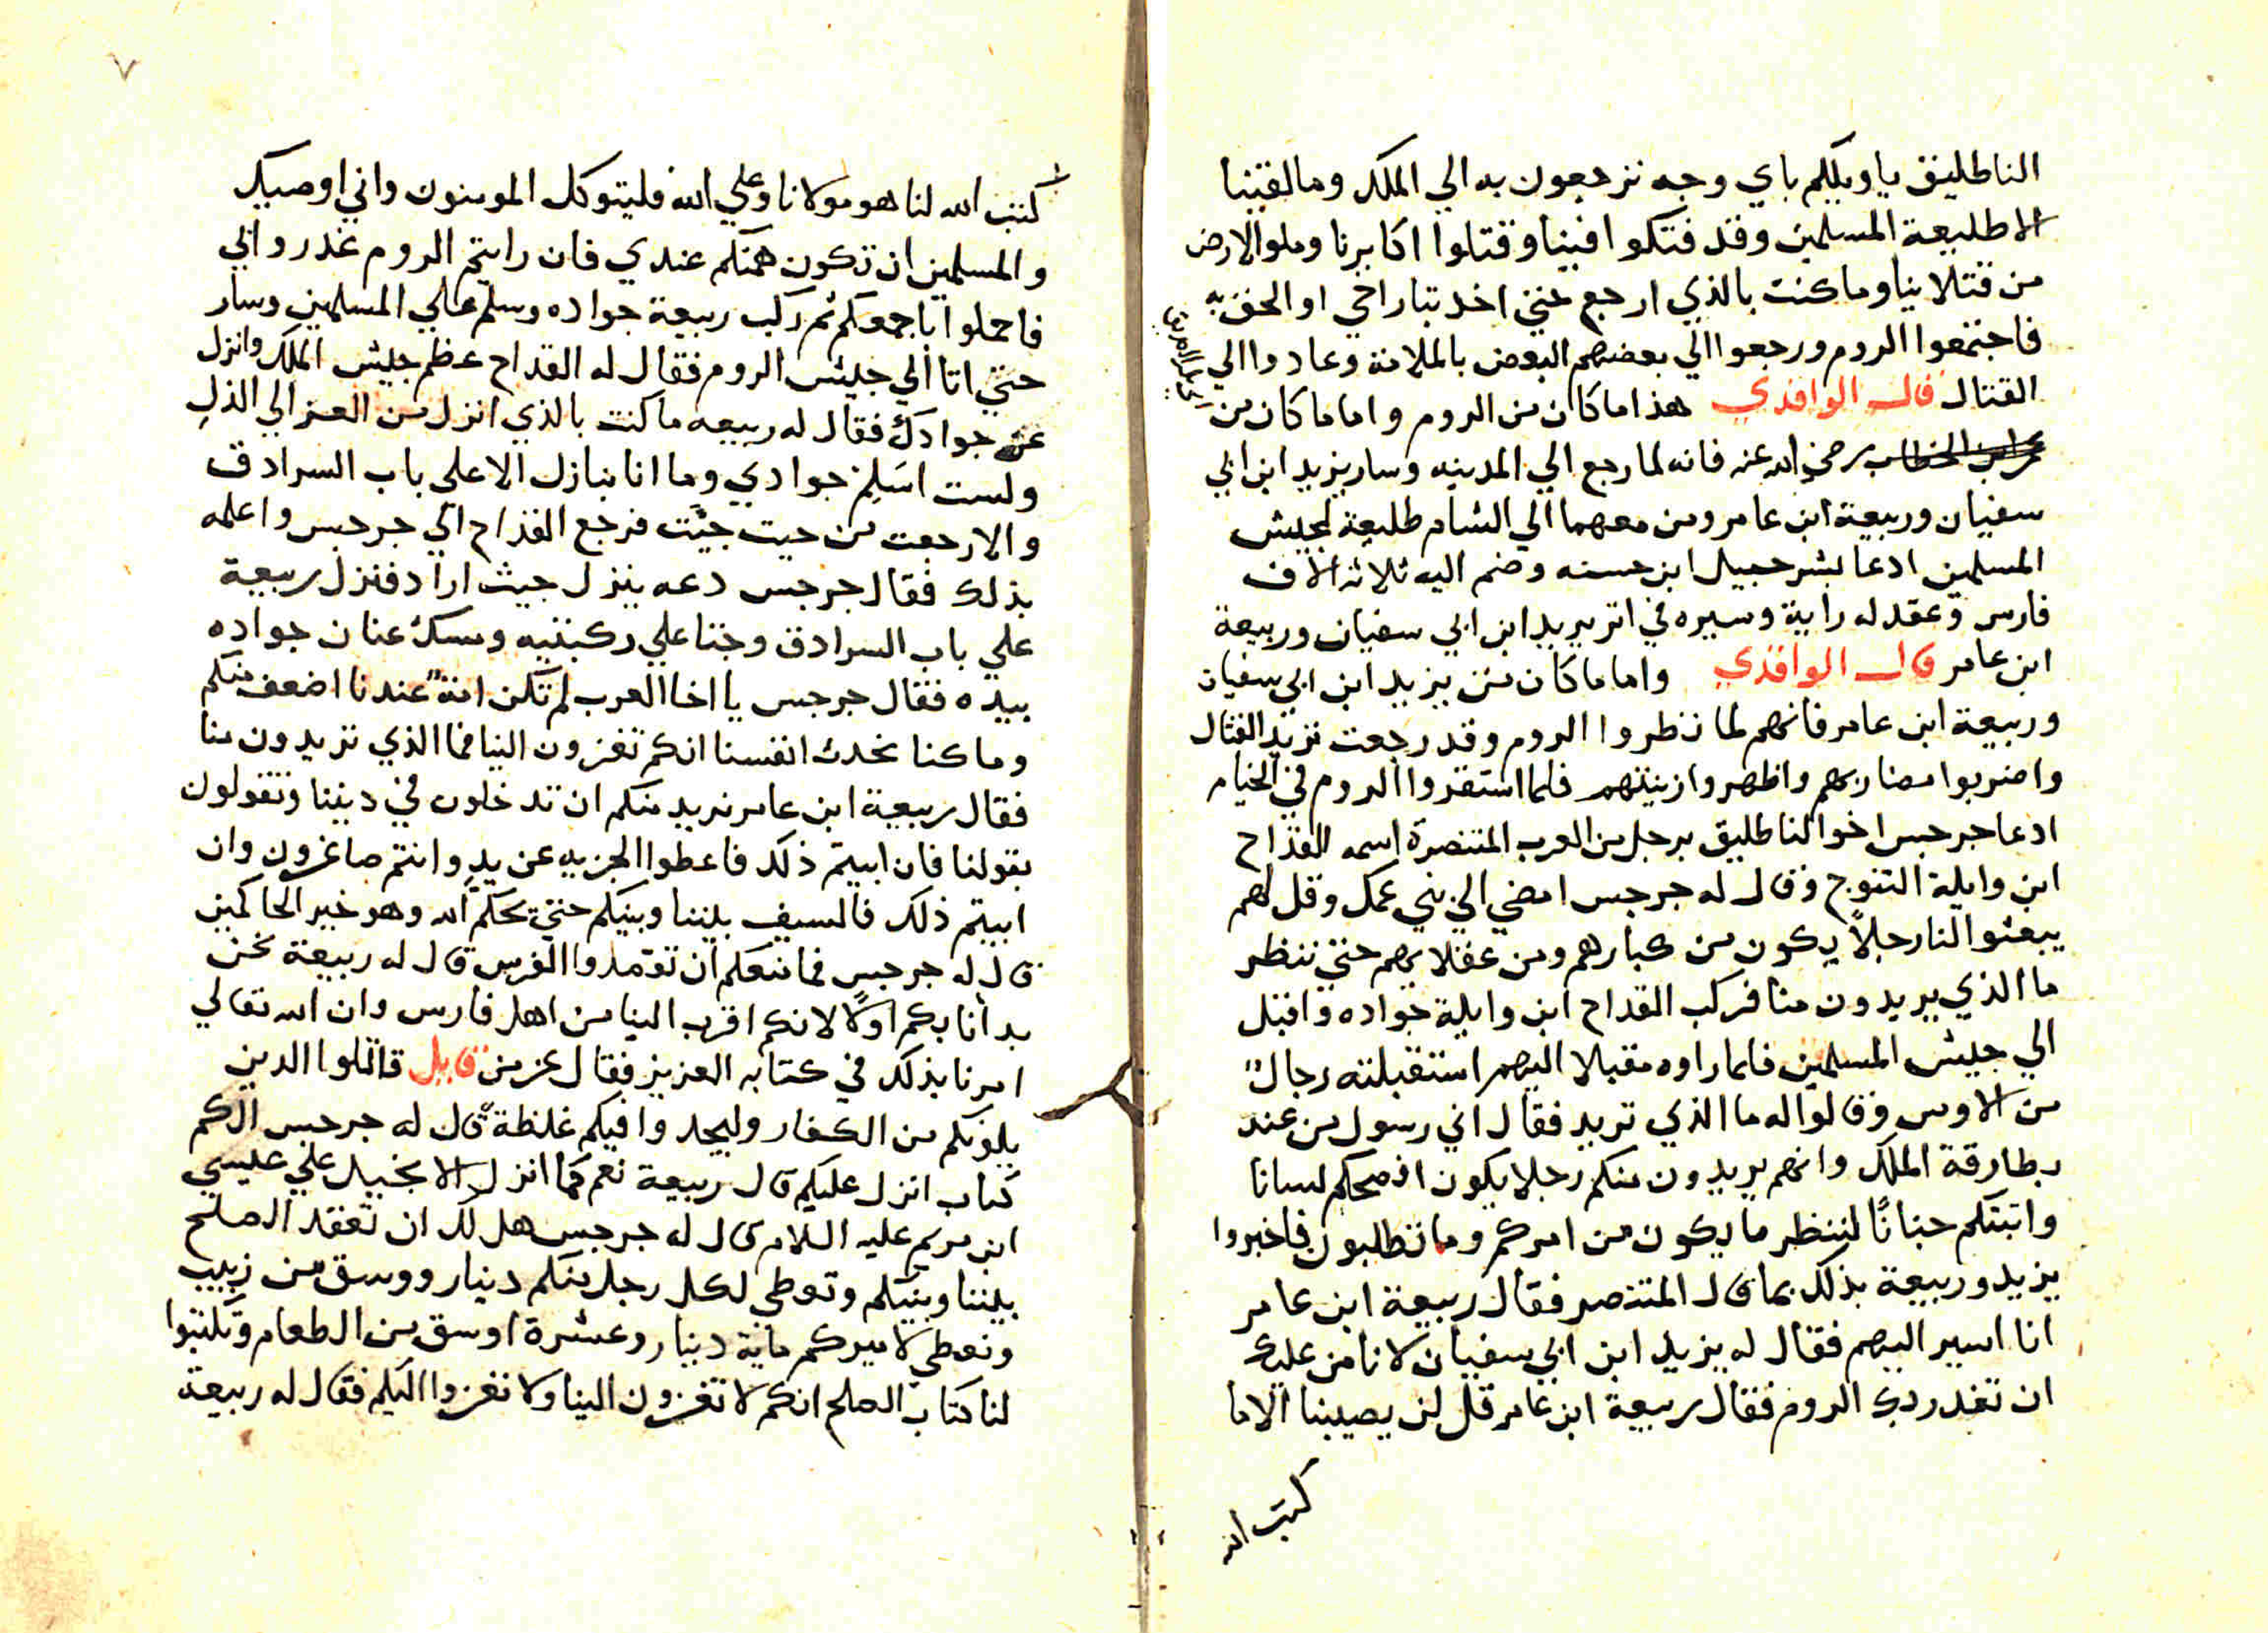 الناطليق ياويلكم باي وجه ترجعون به الي الملك وما لقينا
الا طليعة المسلمين وقد فتكوا فينا وقتلوا اكابرنا وملوا الارض
من قتلانا وما كنت بالذي ارجع حتي اخد بتار اخي او الحق به
فاجتمعوا الروم ورجعوا الي بعضهم البعض بالملامة وعادوا الي
القتال قال الواقدي هذا ما كان من الروم واما ما كان من
عمر ابن الخطاب رضي الله عنه فانه لما رجع الي المدينه وسار يزيد ابن ابي
سفيان وربيعة ابن عامر ومن معهما الي الشام طليعة لجيش
المسلمين ادعا بشرحبيل ابن حسنه وضم اليه ثلاثه الاف
فارس وعقد له راية وسيره في اتر يزيد ابن ابي سفيان وربيعة
ابن عامر قال الواقدي واما ما كان من يزيد ابن ابي سفيان
وربيعة ابن عامر فانهم لما نظروا الروم وقد رجعت تريد القتال
واضربوا مضاربهم واظهروا زينتهم فلما استقروا الروم في الخيام
ادعا جرجس اخوا لناطليق برجل من العرب المتنصرة اسمه القداح
ابن وايلة التنوج وقال له جرجس امضي الي بني عمك وقل لهم
يبعثوا لنا رجلاً يكون من كبارهم ومن عقلايهم حتي ننظر
ما الذي يريدون منا فركب القداح ابن وايلة جواده واقبل
الي جيش المسلمين فلما راوه مقبلا اليهم استقبلته رجالٌ
من الاوس وقالوا له ما الذي تريد فقال اني رسول من عند
بطارقة الملك وانهم يريدون منكم رجلا يكون افصحكم لسانا
واتبتكم جنانًا لننظر ما يكون من امركم وما تطلبون فاخبروا
يزيد وربيعة بذلك بما قال المتنصر فقال ربيعة ابن عامر
انا اسير اليهم فقال له يزيد ابن ابي سفيان لا نامن عليك
ان تغدر بك الروم فقال ربيعة ابن عامر قل لن يصيبنا الا ما
كتب الله
٧
كتب الله لنا هو مولانا وعلي الله فليتوكل المومنون واني اوصيك
والمسلمين ان تكون همتكم عندي فان رايتم الروم غدروا بي
فاحملوا باجمعكم ثم ركب ربيعة جواده وسلم علي المسلمين وسار
حتي اتا الي جيش الروم فقال له القداح عظم جيش الملك وانزل
عن جوادك فقال له ربيعه ما كنت بالذي انزل من العز الي الذل
ولست اسلم جوادي وما انا نبازل الا علي باب السرادق
والا رجعت من حيت جيت فرجع القداح الي جرجس واعلمه
بذلك فقال جرجس دعه ينزل حيث اراد فنزل ربيعة
علي باب السرادق وجتا علي ركبتيه ومسك عنان جواده
بيده فقال جرجس يا اخا العرب لم تكن امة عندنا اضعف منكم
وما كنا نحدث انفسنا انكم تغزون الينا فما الذي تريدون منا
فقال ربيعة ابن عامر نريد منكم ان تدخلون في ديننا وتقولون
بقولنا فان ابيتم ذلك فاعطوا الجزيه عن يدٍ وانتم صاغرون وان
ابيتم ذلك فالسيف بيننا وبينكم حتي يحكم الله وهو خير الحاكمين
قال له جرجس فما منعكم ان تقصدوا الفرس قال له ربيعة نحن
بدانا بكم اولًا لانكم اقرب الينا من اهل فارس وان الله تعالي
امرنا بذلك في كتابه العزيز فقال عز من قايل قاتلوا الدين
يلونكم من الكفار وليجدوا فيكم غلظة قال له جرجس الكم
كتاب انزل عليكم قال ربيعة نعم كما انزل الانجيل علي عيسي
ابن مريم عليه السلام قال له جرجس هل لك ان تعقد الصلح
بيننا وبينكم ونعطي لكل رجل منكم دينار ووسق من زبيب
ونعطي لاميركم ماية دينار وعشرة اوسق من الطعام وتكتبوا
لنا كتاب الصلح انكم لا تغزون الينا ولا نغزوا اليكم فقال له ربيعة